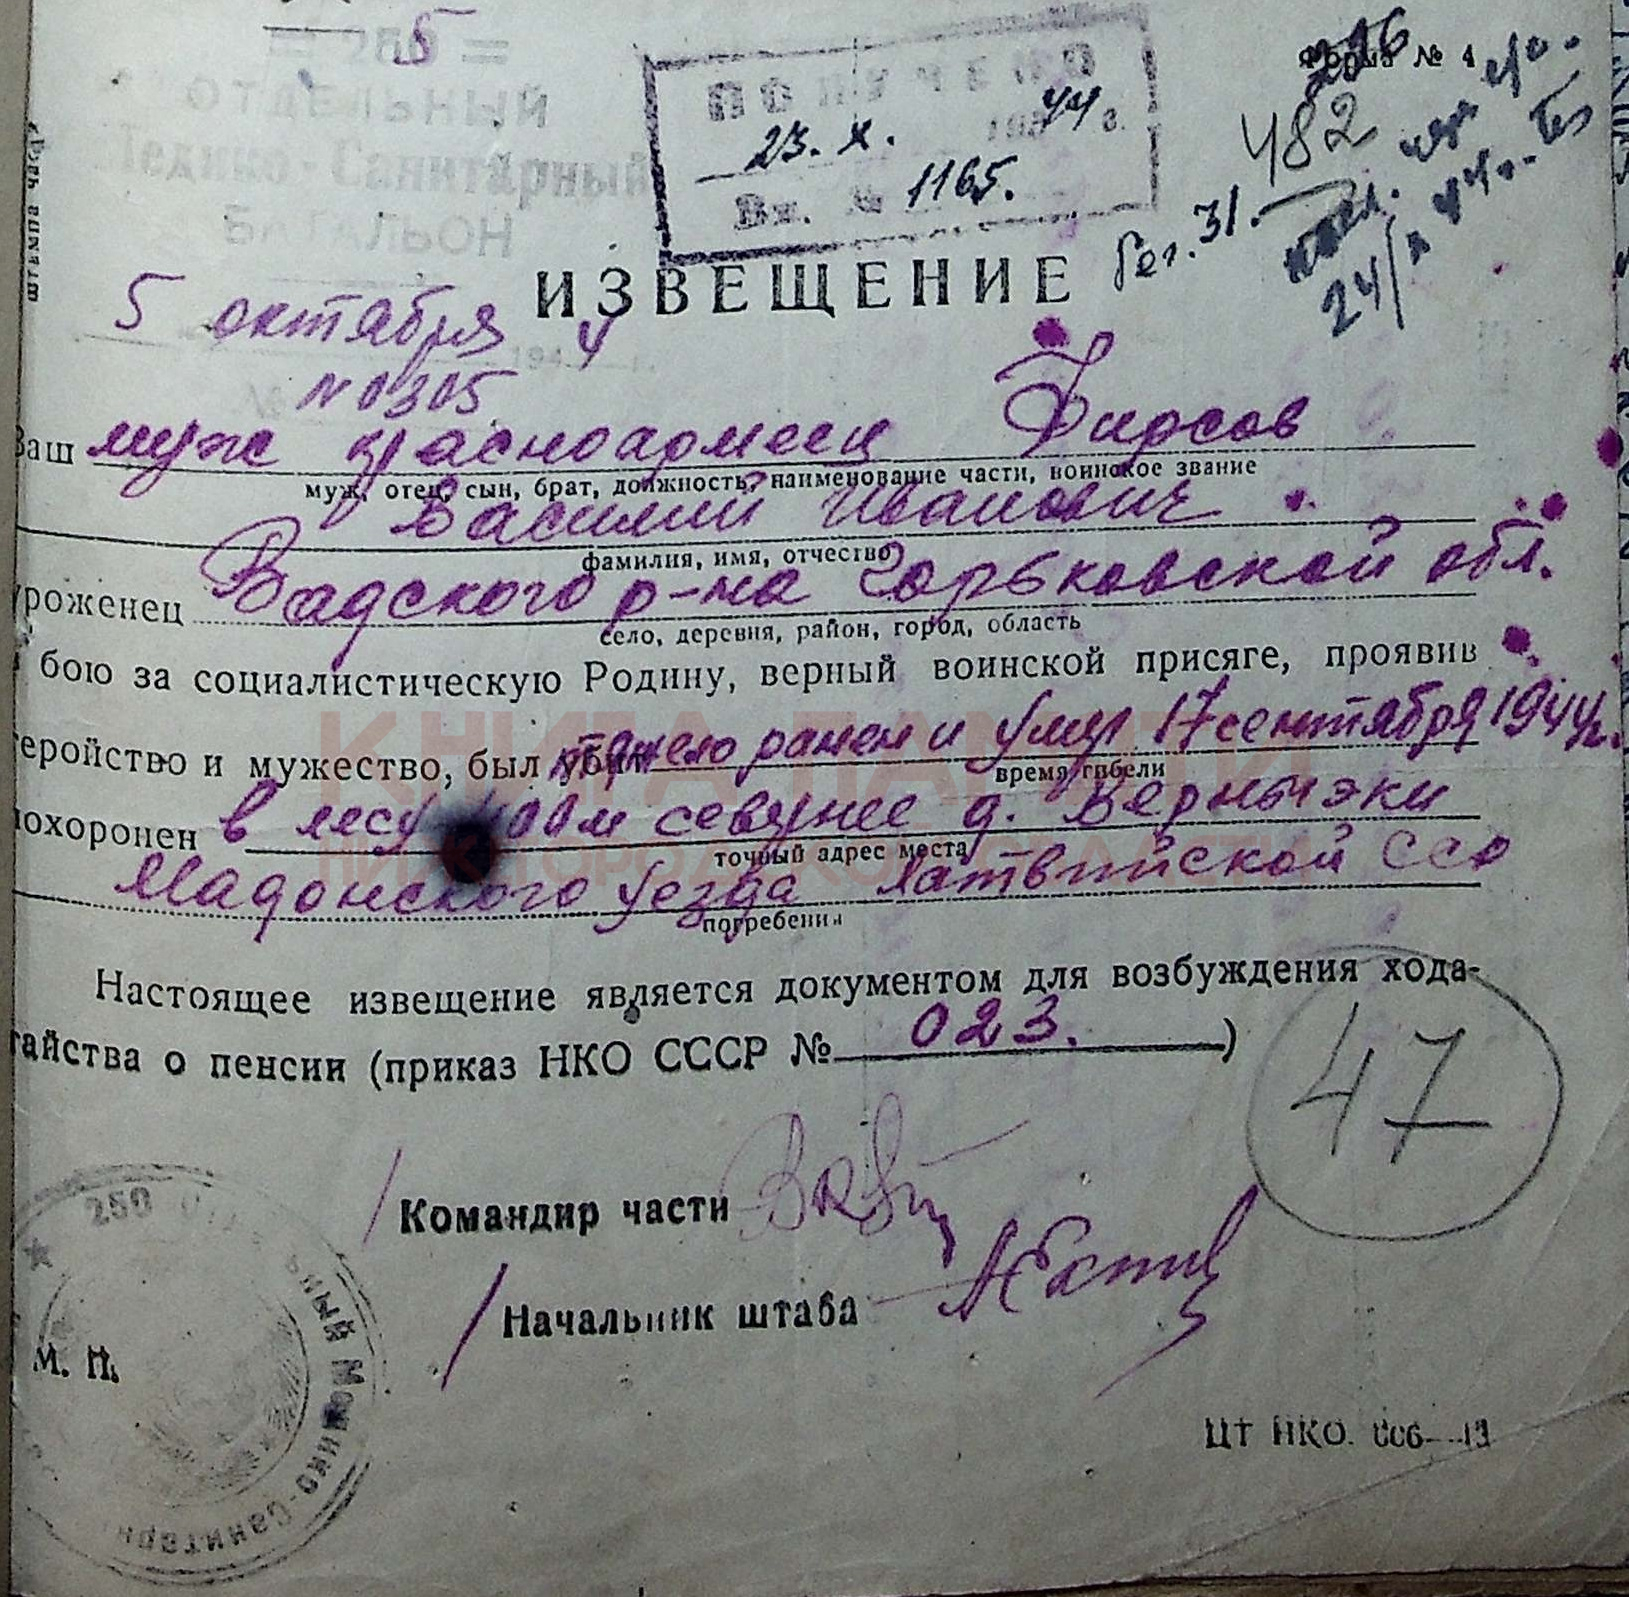 5
ОТДЕЛЬНЫЙ
Медико-Санитарный
БАТАЛЬОН
ПОЛУЧЕНО
23. X. 1944 г.
Вх. № 1165.
Форма № 4
482
31.
ИЗВЕЩЕНИЕ
5 октября 1944 г.
№ 0305
Ваш муж красноармеец Фирсов
муж, отец, сын, брат, должность, наименование части, воинское звание
Василий Иванович
фамилия, имя, отчество
уроженец Вадского р-на Горьковской обл.
село, деревня, район, город, область
в бою за социалистическую Родину, верный воинской присяге, проявив
геройство и мужество, был тяжело ранен и умер 17 сентября 1944 г.
время гибели
похоронен в лесу севернее д.
точный адрес места
Мадонского уезда Латвийской ССр
погребения
Настоящее извещение является документом для возбуждения хода-
тайства о пенсии (приказ НКО СССР № 023.)
47
Командир части
Начальник штаба
М. П.
ЦТ НКО.
КНИГА ПАМЯТИ
НИЖЕГОРОДСКОЙ ОБЛАСТИ